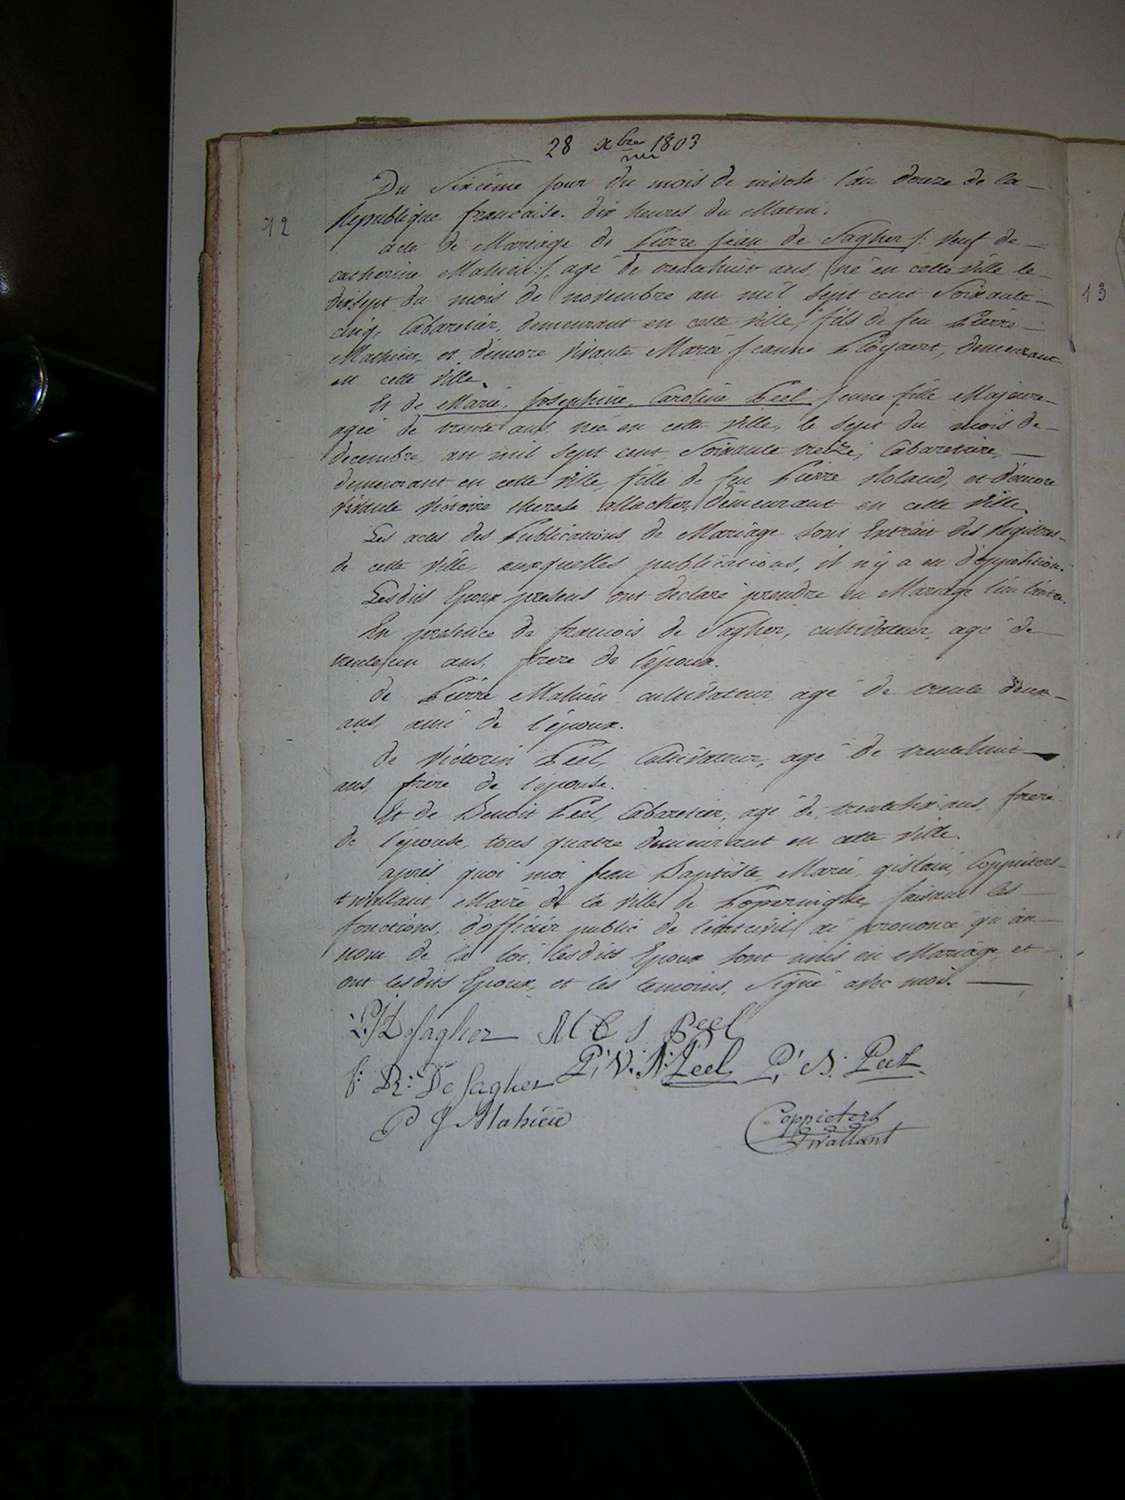 28 xbre 1803
Du Sixième jour du mois de nivose l'an douze de la
12
République française. dix heures du Matin.
acte de Mariage de Pierre jean de Sagher /: veuf de
catherine Mahieu :/ agé de trentehuit ans, né en cette ville le
dixsept du mois de novembre an mil sept cent Soixante
cinq, Cabaretier, demeurant en cette ville, fils de feu Pierre
Mathieu, et d'encore vivante Marie jeanne demeurant
en cette ville.
Et de Marie, joséphine, Caroline Peel, jeune fille Majeure
agée de trente ans née en cette ville, le sept du mois de
decembre an mil sept cent Soixante treize, Cabaretière,
demeurant en cette ville, fille de feu Pierre et d'encore
vivante Victoire therese demeurant en cette ville.
Les actes des Publications de Mariage sont Extrait des Registres
de cette ville, auxquelles publications, il n'y a eu d'opposition.
Lesdits Epoux presens ont declaré prendre en Mariage l'un l'autre.
En présence de francois de Sagher, cultivateur, agé de
trente,un ans, frere de l'époux.
de Pierre Mahieu cultivateur agé de trente deux
ans ami de l'époux.
de Victorin Peel, Cultivateur, agé de trentehuit
ans, frère de l'épouse.
Et de Benoit Peel, Cabaretier, agé de, ans, frere
de l'épouse, tous quatre demeurant en cette ville.
après quoi moi jean Baptiste Marie, gislain, Coppieters
t'wallant, Maire de la ville de Poperinghe, faisant les
fonctions, d'officier public de l'état civil, ai prononcé qu'au
nom de la loi, lesdits Epoux sont unis en Mariage, et
ont lesdits Epoux, et les temoins, Signé avec moi.
P:J DeSagher M C J Peel
f: R: DeSagher P: V: N: Peel P: N: Peel
P J Mahieu
Coppieters
t'wallant
13